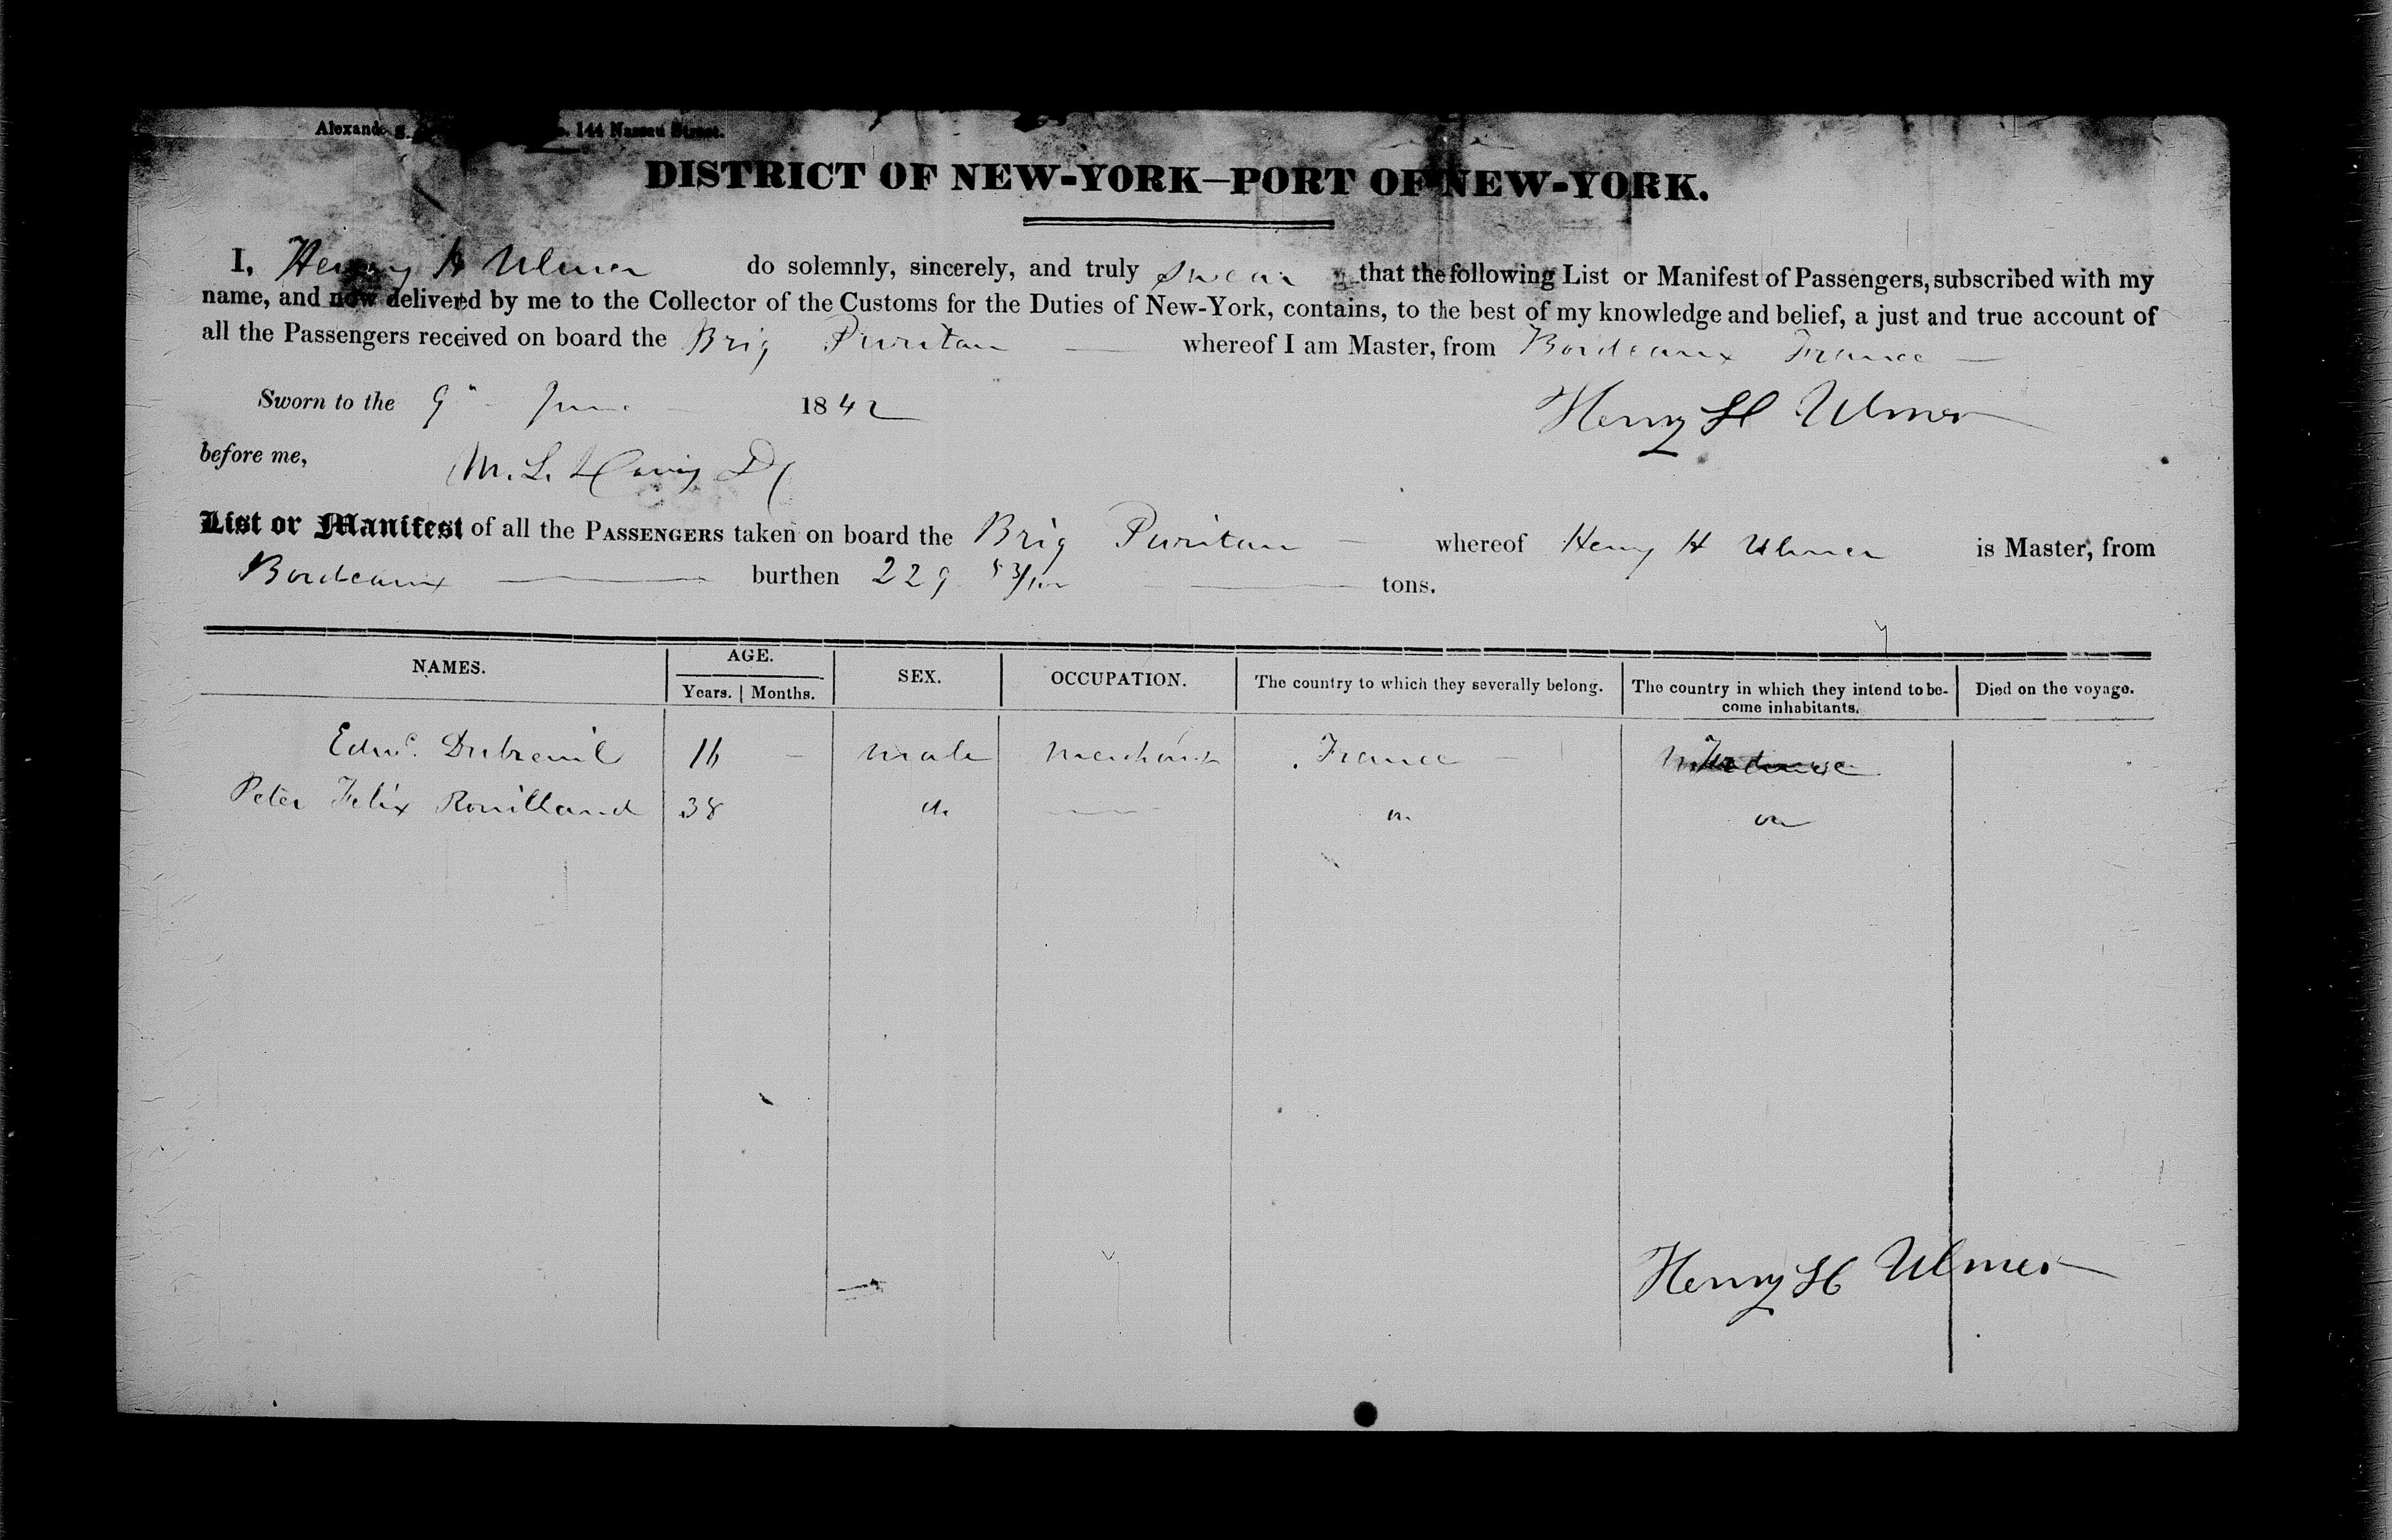 144 Nassau Street.
DISTRICT OF NEW-YORK—PORT OF NEW-YORK.
I, Henry H Ulmer do solemnly, sincerely, and truly swear that the following List or Manifest of Passengers, subscribed with my
name, and now delivered by me to the Collector of the Customs for the Duties of New-York, contains, to the best of my knowledge and belief, a just and true account of
all the Passengers received on board the Brig Puritan — whereof I am Master, from Bordeaux France —
Sworn to the 9" June 1842 Henry H Ulmer
before me, M. L. Davis DC
List or Manifest of all the PASSENGERS taken on board the Brig Puritan — whereof Henry H Ulmer is Master, from
Bordeaux — burthen 229 — tons.
NAMES. AGE. SEX. OCCUPATION. The country to which they severally belong. The country in which they intend to be- Died on the voyage.
Years. | Months. come inhabitants.
Edwd. Dubreuil 16 — male merchant France —
Peter Felix Rouilland 38 do — do do
Henry H Ulmer